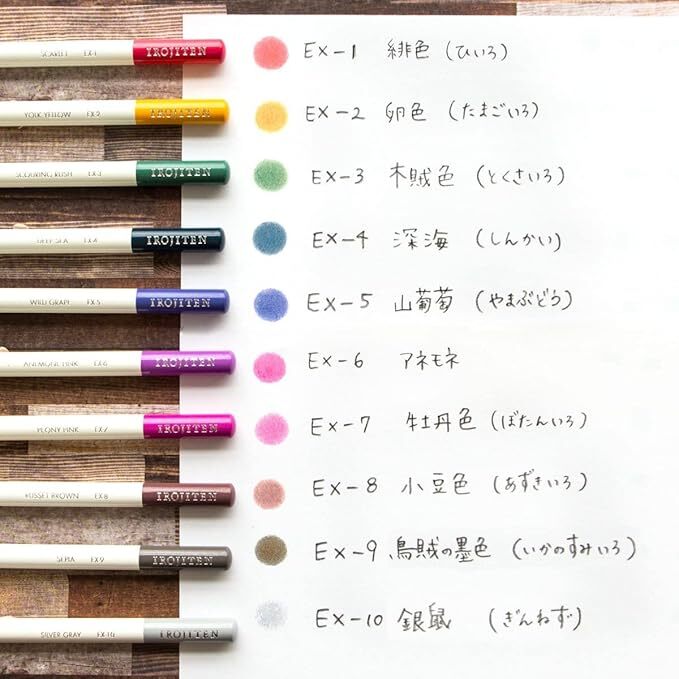 SCARLET EX-1 IROJITEN EX-1 緋色 (ひいろ)
YOLK YELLOW EX-2 IROJITEN EX-2 卵色 (たまごいろ)
SCOURING RUSH EX-3 IROJITEN EX-3 木賊色 (とくさいろ)
DEEP SEA EX-4 IROJITEN EX-4 深海 (しんかい)
WILD GRAPE EX-5 IROJITEN EX-5 山葡萄 (やまぶどう)
ANEMONE PINK EX-6 IROJITEN EX-6 アネモネ
PEONY PINK EX-7 IROJITEN EX-7 牡丹色 (ぼたんいろ)
RUSSET BROWN EX-8 IROJITEN EX-8 小豆色 (あずきいろ)
SEPIA EX-9 IROJITEN EX-9 烏賊の墨色 (いかのすみいろ)
SILVER GRAY EX-10 IROJITEN EX-10 銀鼠 (ぎんねず)